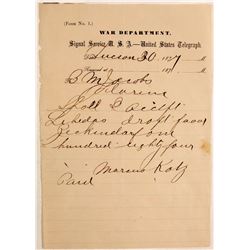 (Form No. 1.)
WAR DEPARTMENT.
Signal Service, U. S. A.—United States Telegraph.
Tucson 30 187
Received at 187
B M Jacobs
Florence
Shall I accept
draft favor
one
hundred eighty four
Marcus Katz
Paid